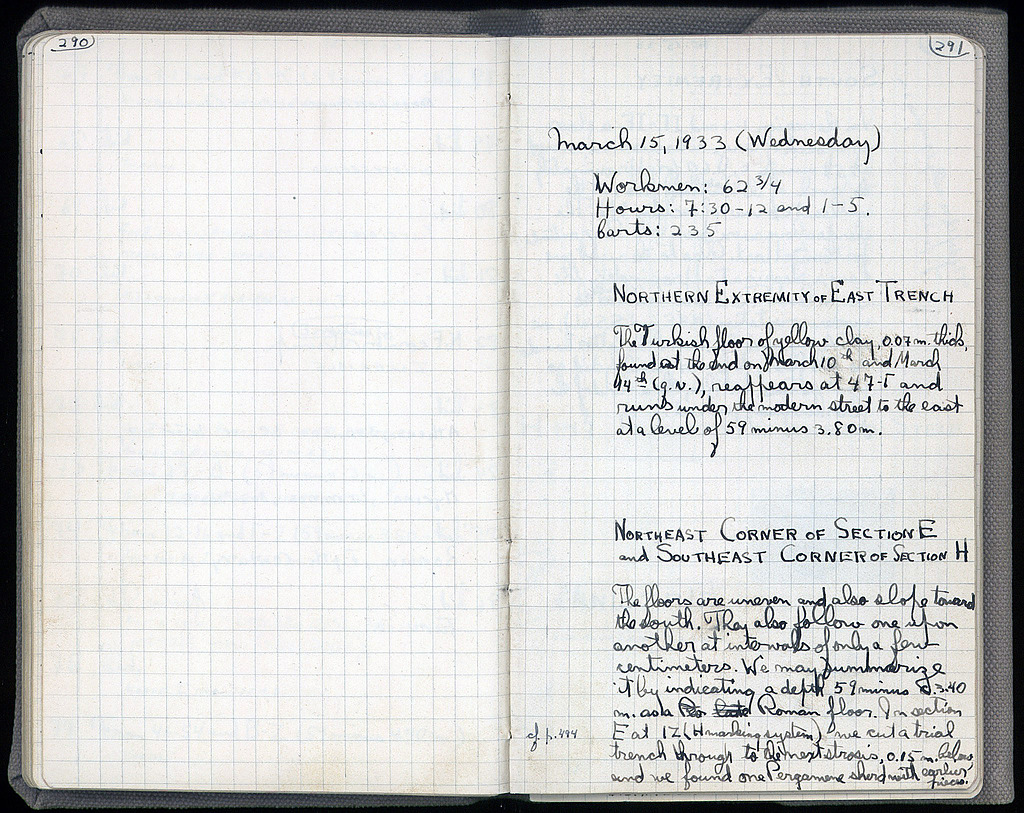 290
291
March 15, 1933 (Wednesday)
Workmen: 62 3/4
Hours: 7:30-12 and 1-5.
Carts: 235
NORTHERN EXTREMITY OF EAST TRENCH
The Turkish floor of yellow clay, 0.07 m. thick,
found at the end on March 10th and March
14th (q.v.), reappears at 47-Γ and
runs under the modern street to the east
at a level of 59 minus 3.80 m.
NORTHEAST CORNER OF SECTION E
and SOUTHEAST CORNER OF SECTION H
The floors are uneven and also slope toward
the south. They also follow one upon
another at intervals of only a few
centimeters. We may summarize
it by indicating a depth 59 minus 3.40
m. as a Roman floor. In section
E at 1Z (H marking system) we cut a trial
cf. p. 494
trench through to the next strosis, 0.15 m. below
and we found one Pergamene sherd with earlier
pieces.